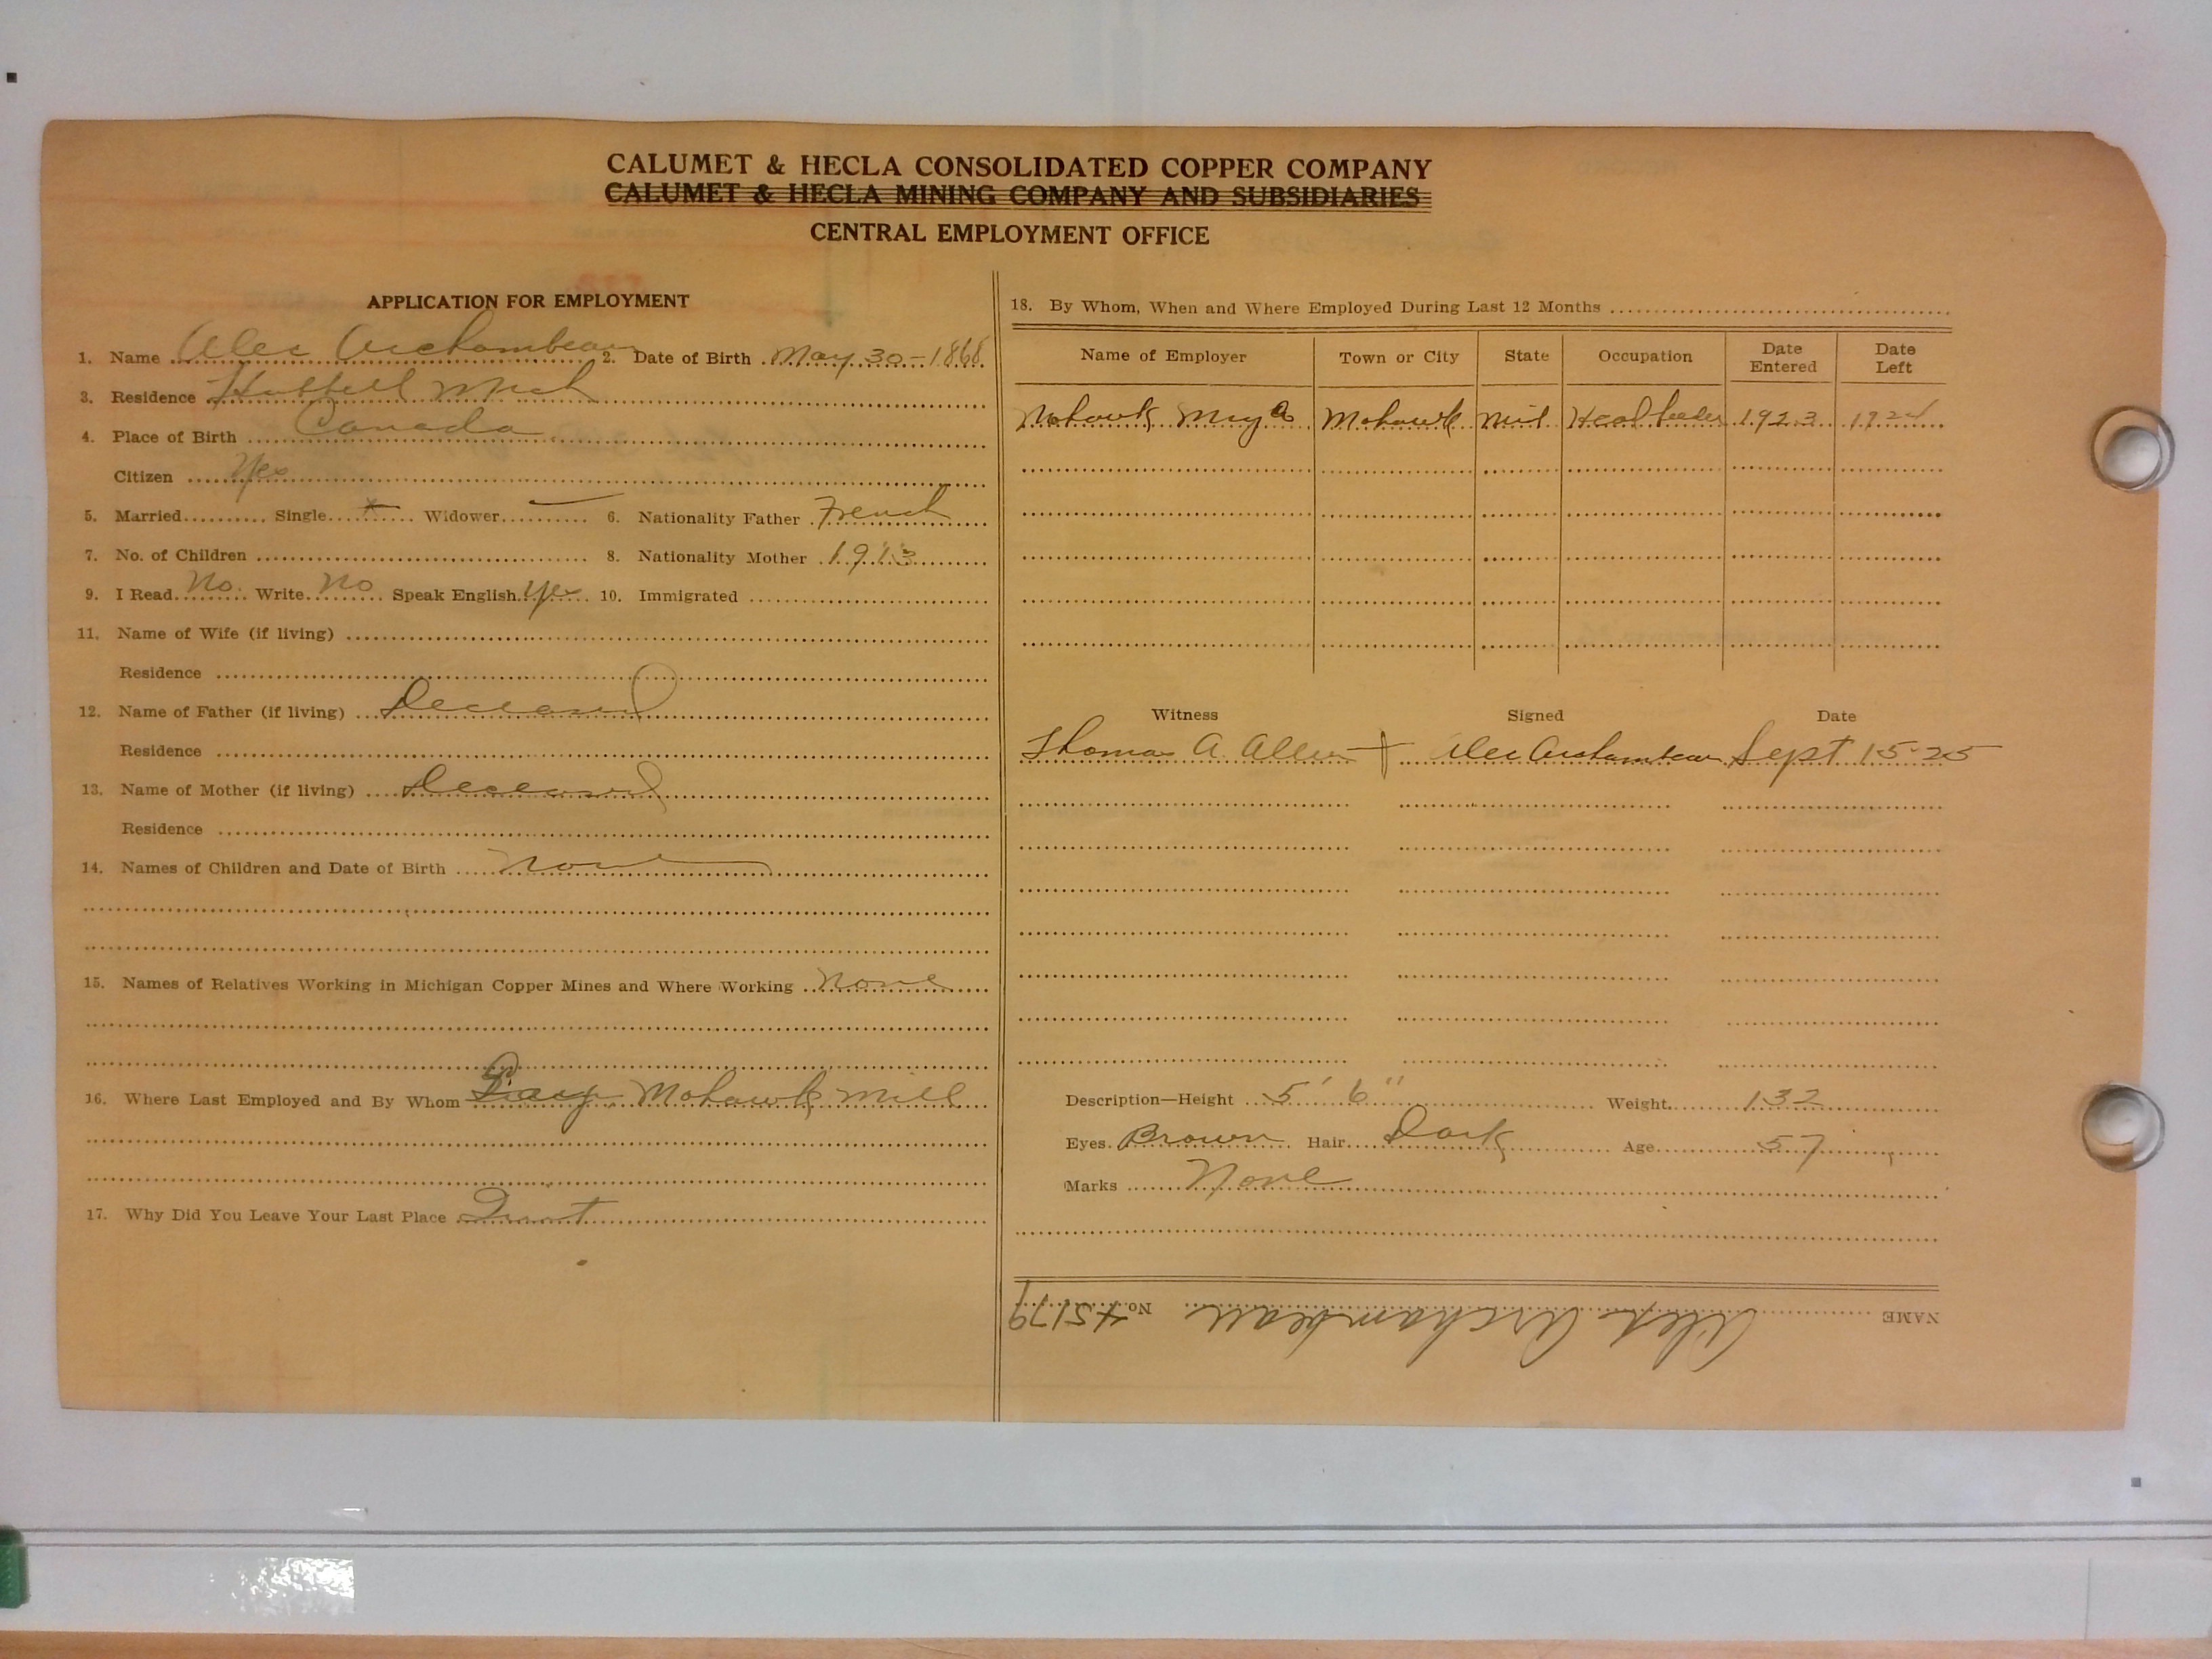 CALUMET & HECLA CONSOLIDATED COPPER COMPANY
CALUMET & HECLA MINING COMPANY AND SUBSIDIARIES
CENTRAL EMPLOYMENT OFFICE
APPLICATION FOR EMPLOYMENT
1. Name Alec Archambeau 2. Date of Birth May 30-1868
3. Residence Hubbell Mich
4. Place of Birth Canada
Citizen Yes
5. Married Single x Widower 6. Nationality Father French
7. No. of Children 8. Nationality Mother 1913
9. I Read No. Write No Speak English Yes 10. Immigrated
11. Name of Wife (if living)
Residence
12. Name of Father (if living) Deceased
Residence
13. Name of Mother (if living) Deceased
Residence
14. Names of Children and Date of Birth None
15. Names of Relatives Working in Michigan Copper Mines and Where Working None
16. Where Last Employed and By Whom Mohawk Mill
17. Why Did You Leave Your Last Place
18. By Whom, When and Where Employed During Last 12 Months
Name of Employer Town or City State Occupation Date Entered Date Left
Mohawk Mohawk 1923 1924
Witness Signed Date
Thomas A. Allen Alec Archambeau Sept 15-25
Description—Height 5' 6" Weight 132
Eyes Brown Hair Dark Age 57
Marks None
NAME Alex Archambeau No. 45179